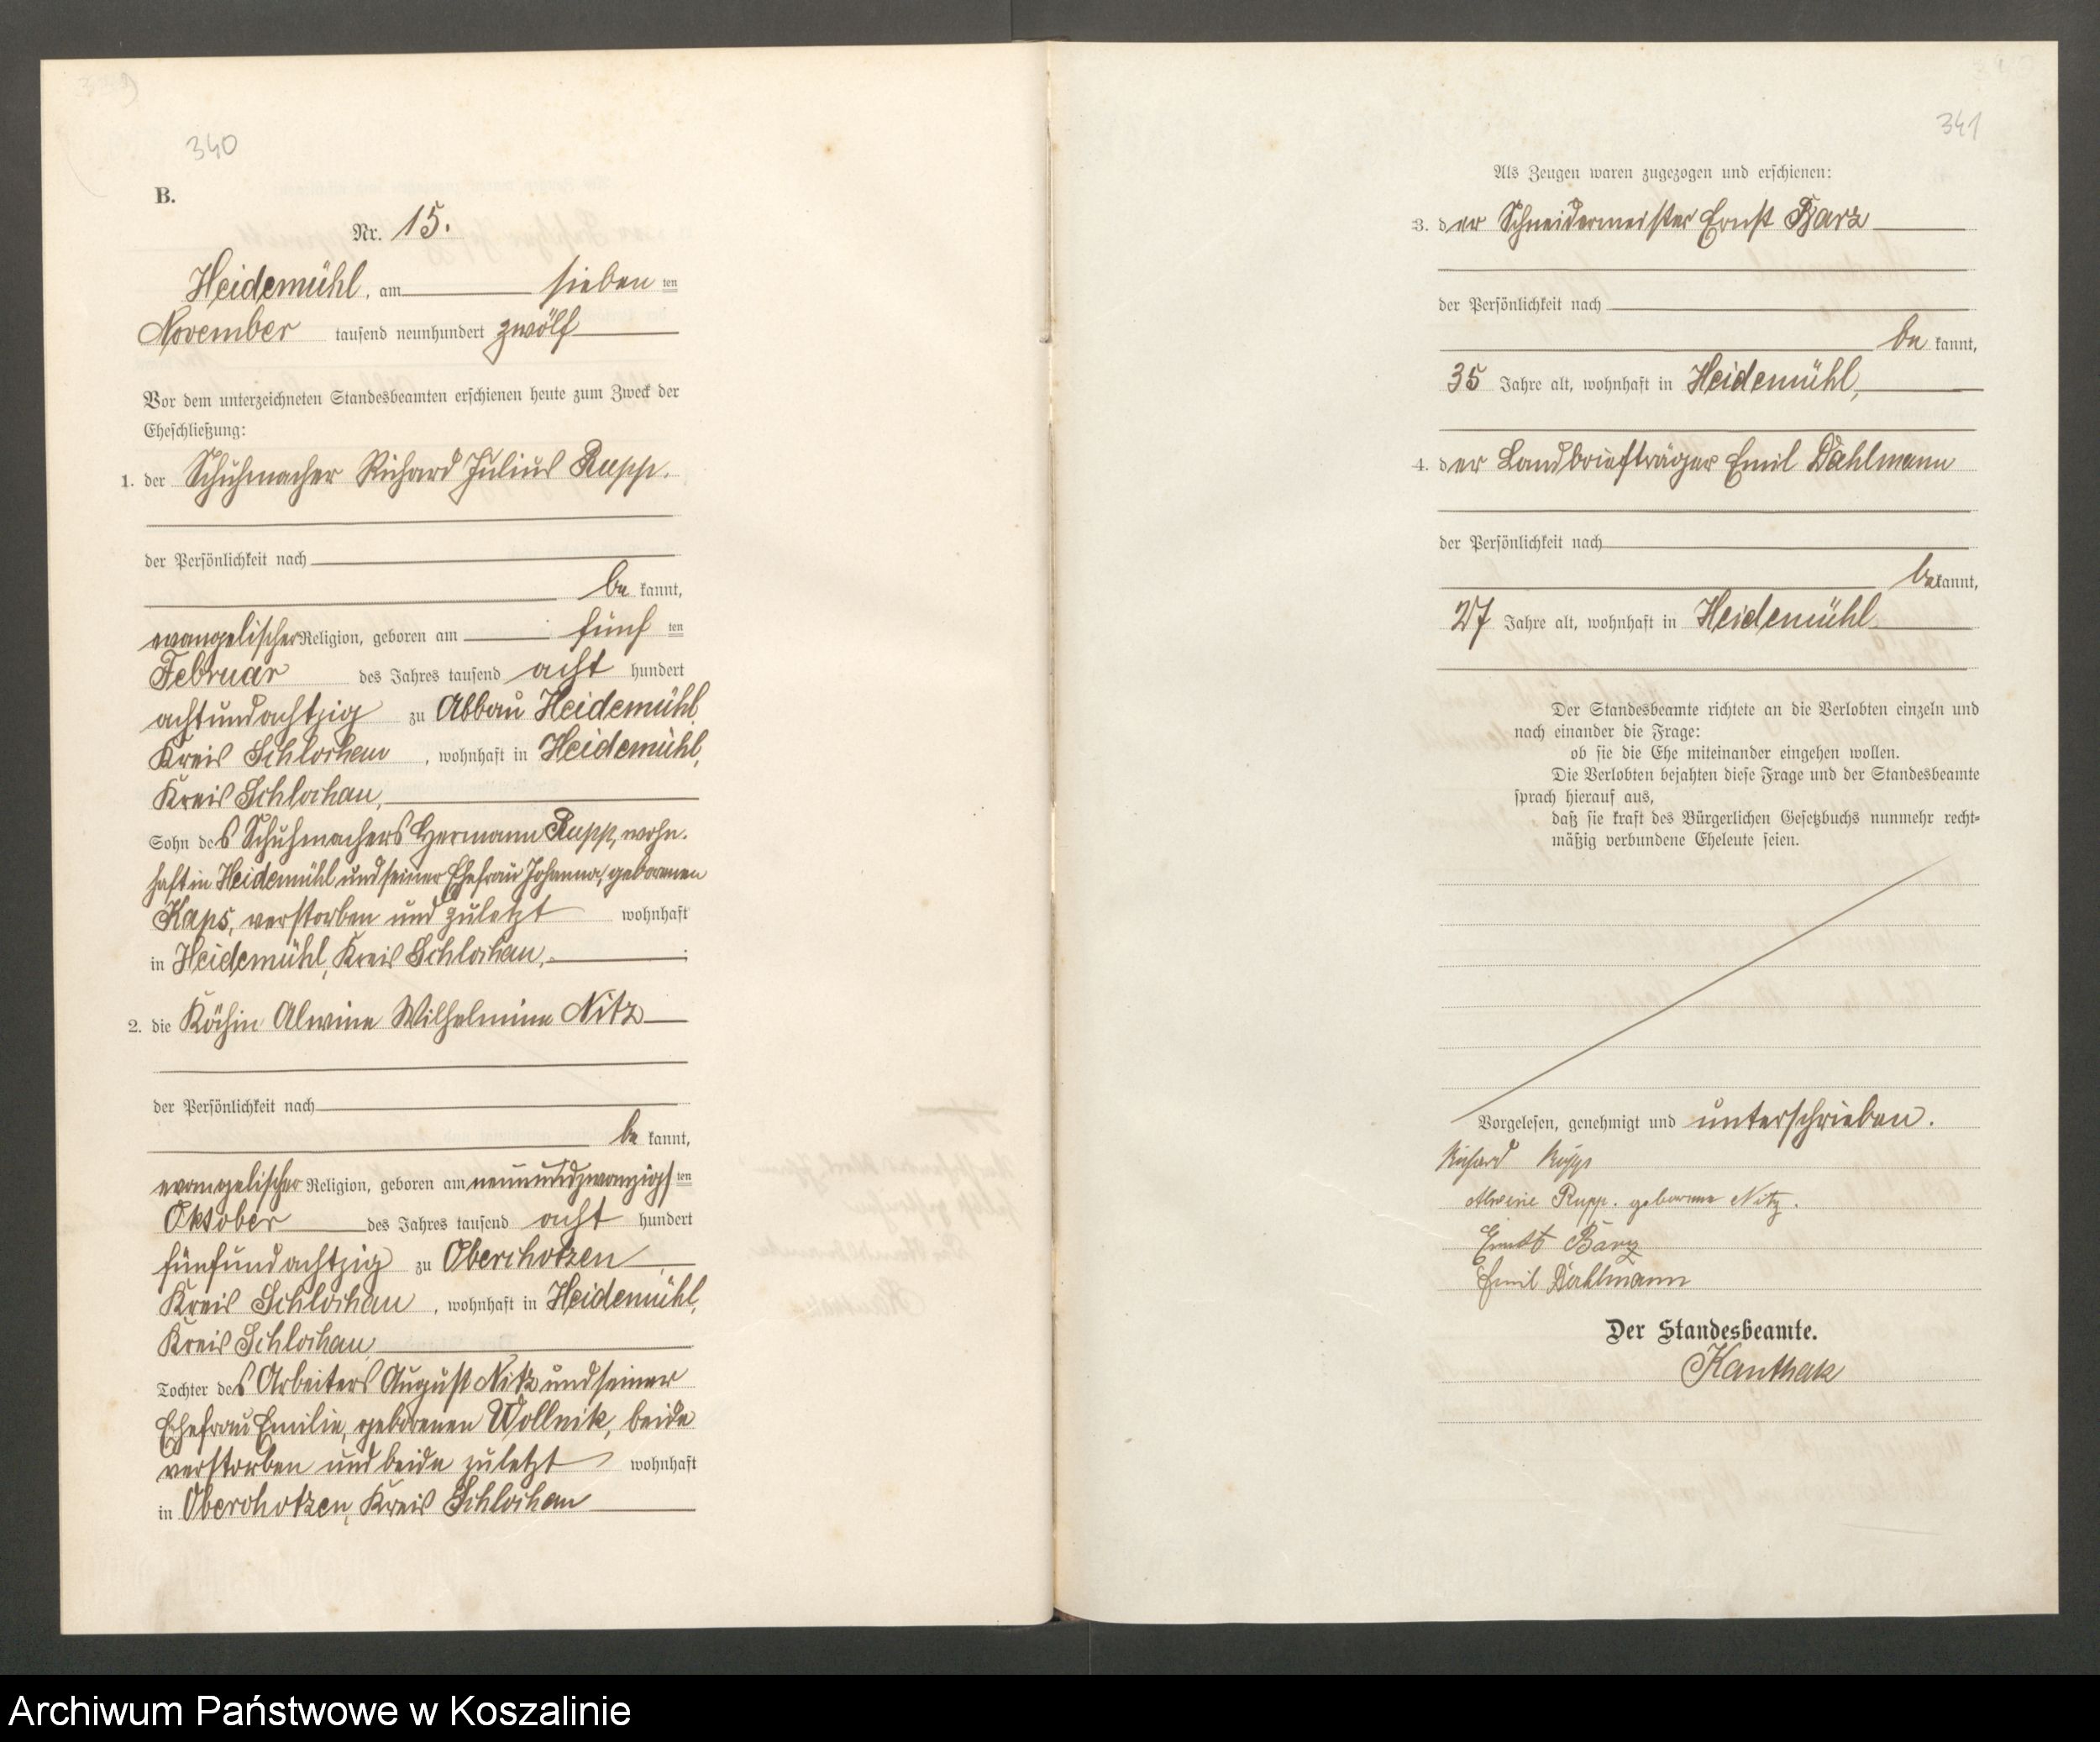 340
B.
Nr. 15.
Heidemühl, am sieben ten
November tausend neunhundert zwölf
Vor dem unterzeichneten Standesbeamten erschienen heute zum Zweck der
Eheschließung:
1. der Schuhmacher Richard Julius Rupp.
der Persönlichkeit nach
be kannt,
evangelischer Religion, geboren am fünf ten
Februar des Jahres tausend acht hundert
achtundachtzig zu Abbau Heidemühl
Kreis Schlochau, wohnhaft in Heidemühl,
Kreis Schlochau,
Sohn des Schuhmachers Hermann Rupp, wohn-
haft in Heidemühl und seiner Ehefrau Johanna, geborenen
Kaps, verstorben und zuletzt wohnhaft
in Heidemühl, Kreis Schlochau,
2. die Köchin Alwine Wilhelmine Nitz
der Persönlichkeit nach
be kannt,
evangelischer Religion, geboren am neunundzwanzigs ten
Oktober des Jahres tausend acht hundert
fünfundachtzig zu Oberchotzen,
Kreis Schlochau, wohnhaft in Heidemühl,
Kreis Schlochau
Tochter des Arbeiters August Nitz und seiner
Ehefrau Emilie, geborenen Wollnik, beide
verstorben und beide zuletzt wohnhaft
in Oberchotzen, Kreis Schlochau
341
Als Zeugen waren zugezogen und erschienen:
3. der Schneidermeister Ernst Barz
der Persönlichkeit nach
be kannt,
35 Jahre alt, wohnhaft in Heidemühl,
4. der Landbriefträger Emil Dahlmann
der Persönlichkeit nach
be kannt,
27 Jahre alt, wohnhaft in Heidemühl
Der Standesbeamte richtete an die Verlobten einzeln und
nach einander die Frage:
ob sie die Ehe miteinander eingehen wollen.
Die Verlobten bejahten diese Frage und der Standesbeamte
sprach hierauf aus,
daß sie kraft des Bürgerlichen Gesetzbuchs nunmehr recht-
mäßig verbundene Eheleute seien.
Vorgelesen, genehmigt und unterschrieben.
Richard Rupp
Alwine Rupp. geborene Nitz.
Ernst Barz
Emil Dahlmann
Der Standesbeamte.
Kanthak
Archiwum Państwowe w Koszalinie